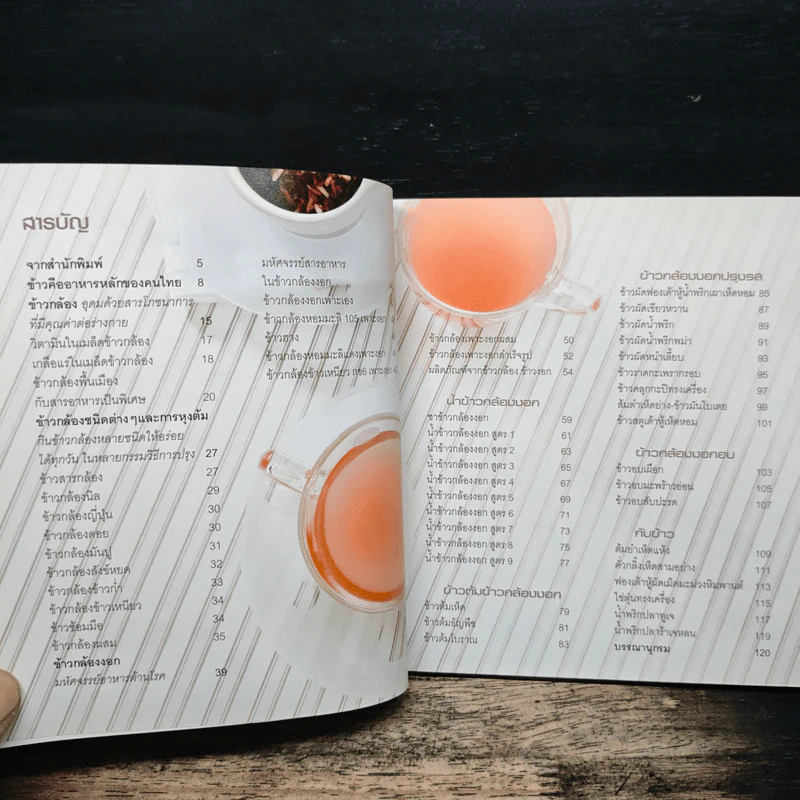 สารบัญ
จากสำนักพิมพ์ 5
ข้าวคืออาหารหลักของคนไทย 8
ข้าวกล้อง อุดมด้วยสารโภชนาการ
ที่มีคุณค่าต่อร่างกาย 15
วิตามินในเมล็ดข้าวกล้อง 17
เกลือแร่ในเมล็ดข้าวกล้อง 18
ข้าวกล้องพื้นเมือง
กับสารอาหารเป็นพิเศษ 20
ข้าวกล้องชนิดต่างๆและการหุงต้ม
กินข้าวกล้องหลายชนิดให้อร่อย
ได้ทุกวัน ในหลายกรรมวิธีการปรุง 27
ข้าวสารกล้อง 27
ข้าวกล้องนิล 29
ข้าวกล้องญี่ปุ่น 30
ข้าวกล้องดอย 30
ข้าวกล้องมันปู 31
ข้าวกล้องสังข์หยด 32
ข้าวกล้องข้าวก่ำ 33
ข้าวกล้องข้าวเหนียว 34
ข้าวซ้อมมือ 34
ข้าวกล้องผสม 35
ข้าวกล้องงอก
มหัศจรรย์อาหารต้านโรค 39
มหัศจรรย์สารอาหาร
ในข้าวกล้องงอก
ข้าวกล้องงอกเพาะเอง
ข้าวกล้องหอมมะลิ 105 เพาะงอก
ข้าวฮาง
ข้าวกล้องหอมมะลิแดงเพาะงอก
ข้าวกล้องข้าวเหนียว กข6 เพาะงอก
ข้าวกล้องเพาะงอกผสม 50
ข้าวกล้องเพาะงอกสำเร็จรูป 52
ผลิตภัณฑ์จากข้าวกล้อง ข้าวงอก 54
น้ำข้าวกล้องงอก
ชาข้าวกล้องงอก 59
น้ำข้าวกล้องงอก สูตร 1 61
น้ำข้าวกล้องงอก สูตร 2 63
น้ำข้าวกล้องงอก สูตร 3 65
น้ำข้าวกล้องงอก สูตร 4 67
น้ำข้าวกล้องงอก สูตร 5 69
น้ำข้าวกล้องงอก สูตร 6 71
น้ำข้าวกล้องงอก สูตร 7 73
น้ำข้าวกล้องงอก สูตร 8 75
น้ำข้าวกล้องงอก สูตร 9 77
ข้าวต้มข้าวกล้องงอก
ข้าวต้มเห็ด 79
ข้าวต้มธัญพืช 81
ข้าวต้มโบราณ 83
ข้าวกล้องงอกปรุงรส
ข้าวผัดฟองเต้าหู้น้ำพริกเผาเห็ดหอม 85
ข้าวผัดเขียวหวาน 87
ข้าวผัดน้ำพริก 89
ข้าวผัดน้ำพริกพม่า 91
ข้าวผัดหนำเลี้ยบ 93
ข้าวราดกะเพรากรอบ 95
ข้าวคลุกกะปิทรงเครื่อง 97
ส้มตำเห็ดย่าง-ข้าวมันใบเตย 99
ข้าวสตูเต้าหู้เห็ดหอม 101
ข้าวกล้องงอกอบ
ข้าวอบเผือก 103
ข้าวอบมะพร้าวอ่อน 105
ข้าวอบสับปะรด 107
กับข้าว
ต้มยำเห็ดแห้ง 109
คั่วกลิ้งเห็ดสามอย่าง 111
ฟองเต้าหู้ผัดเม็ดมะม่วงหิมพานต์ 113
ไข่ตุ๋นทรงเครื่อง 115
น้ำพริกปลาทูเจ 117
น้ำพริกปลาร้าเจหลน 119
บรรณานุกรม 120